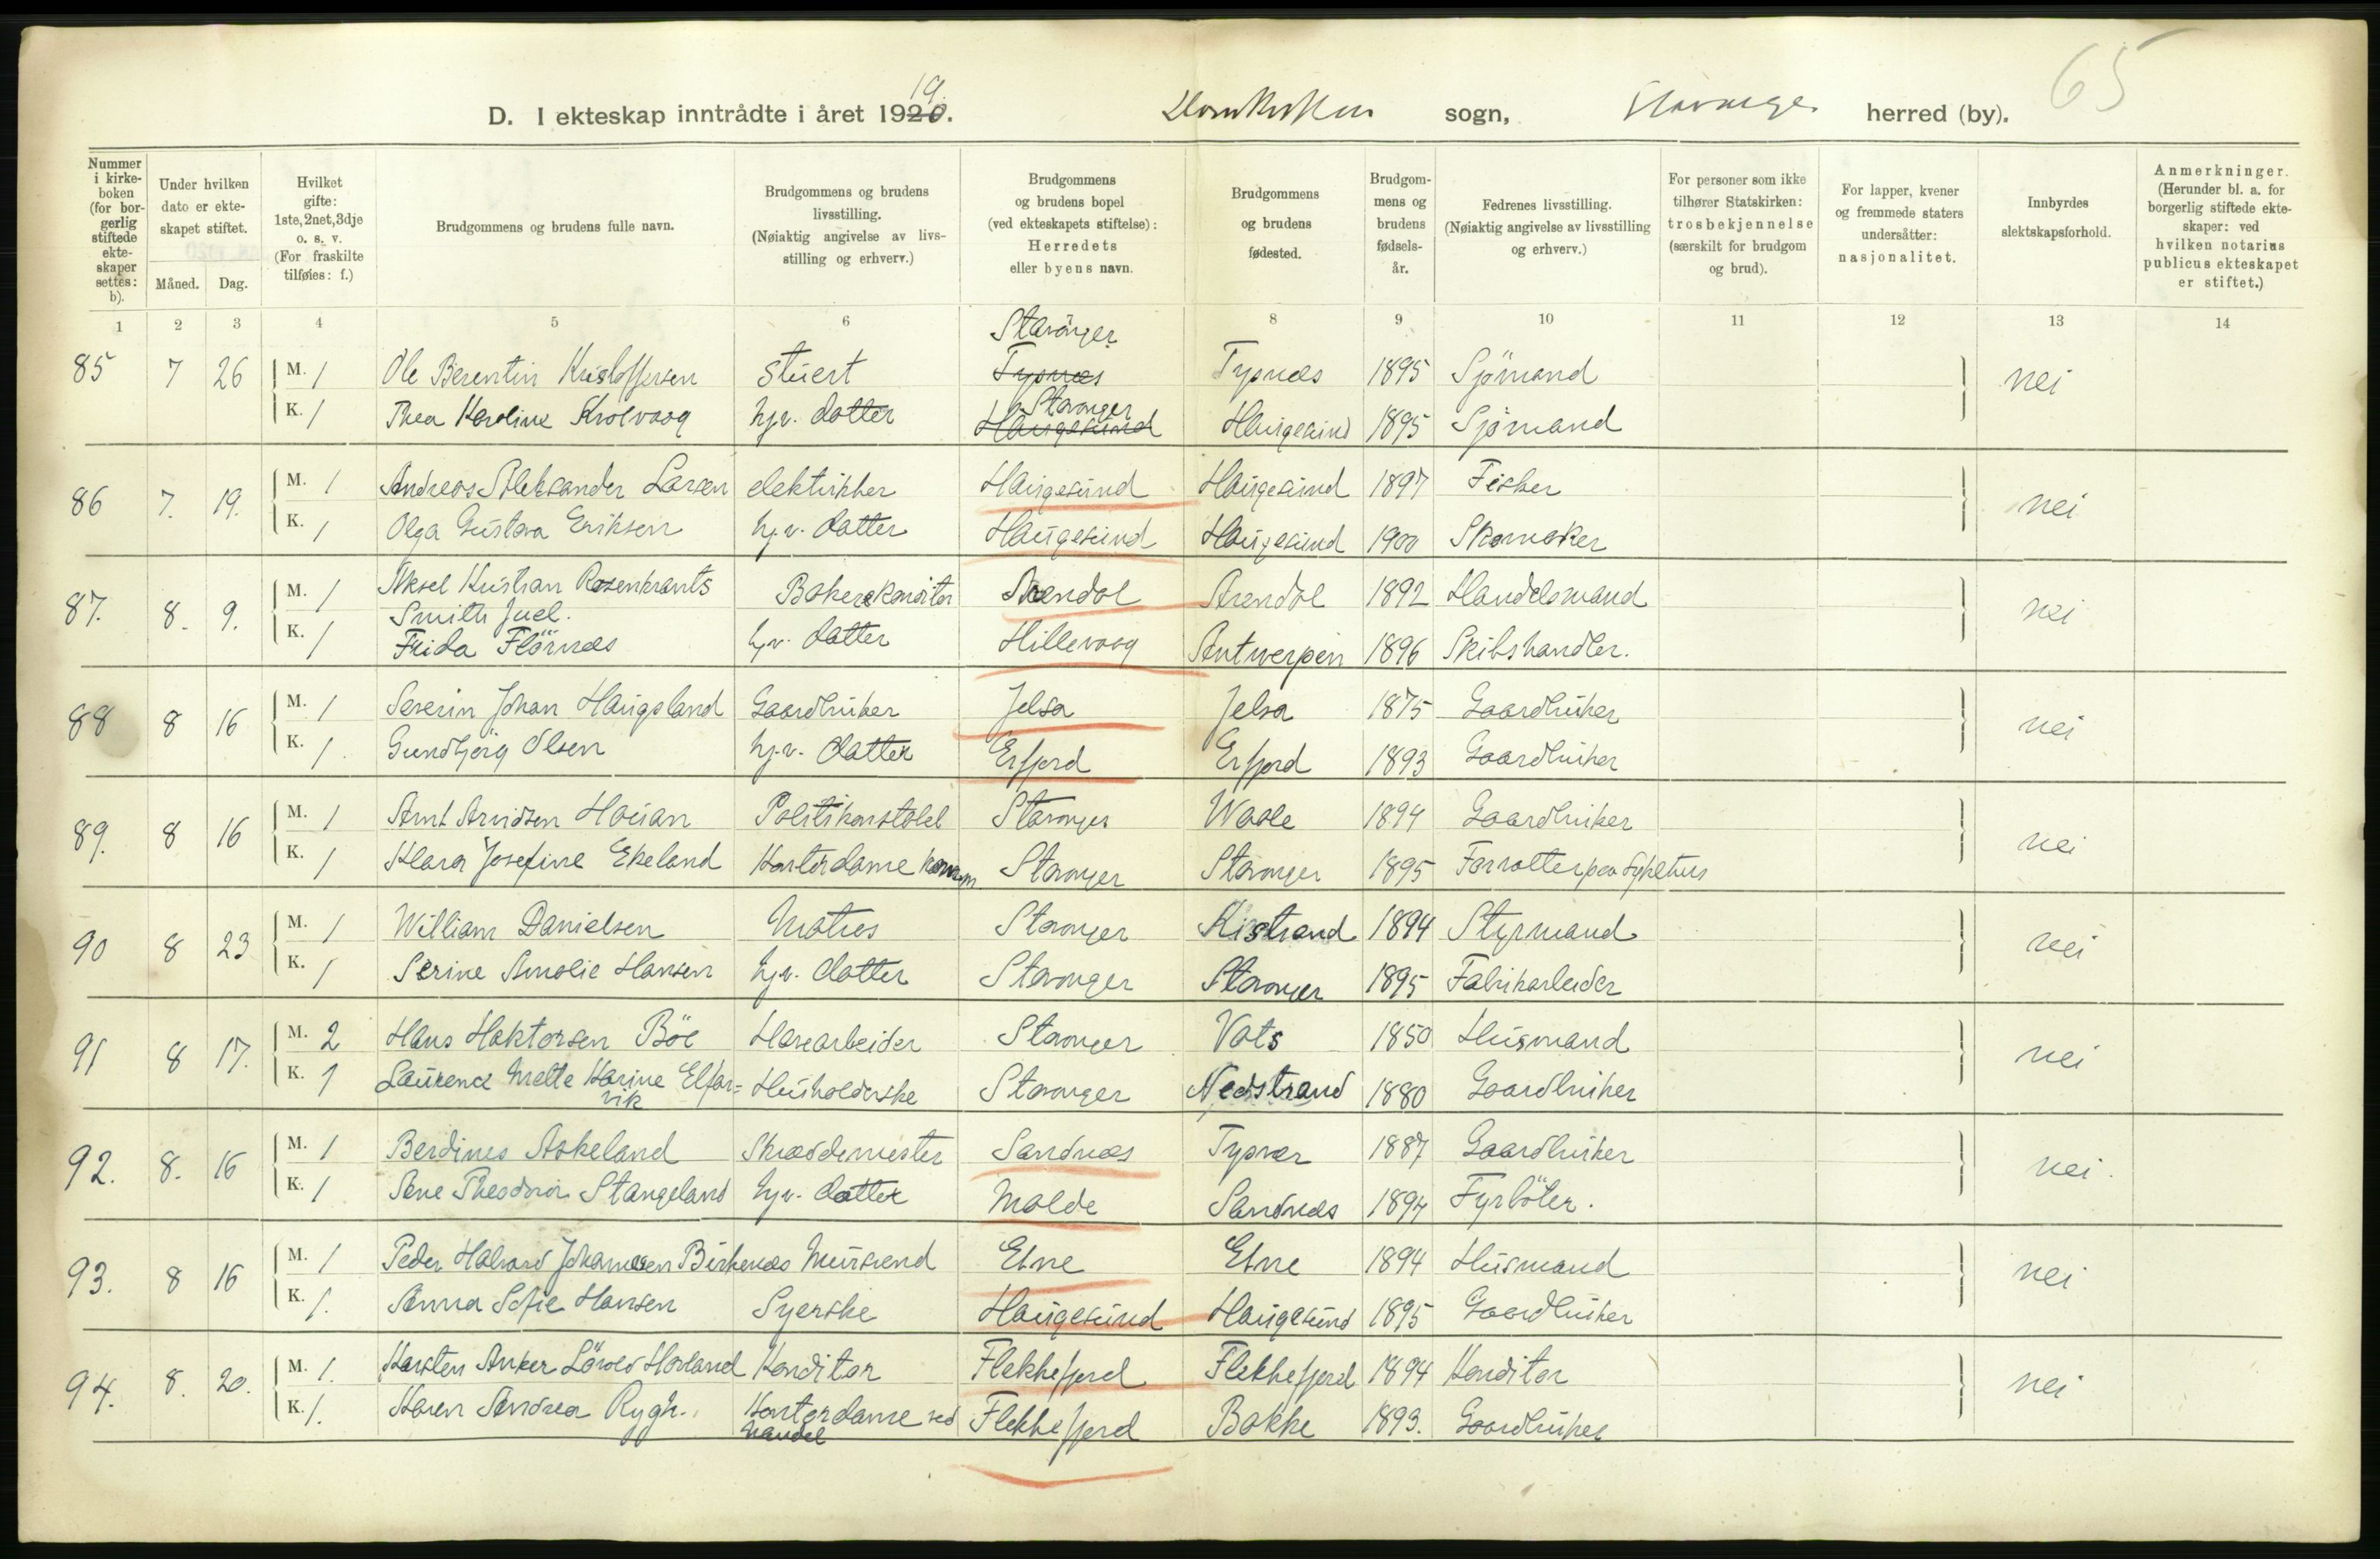 65
D. I ekteskap inntrådte i året 1920. 19. Domkirken sogn, Stavanger herred (by).
Nummer i kirkeboken (for borgerlig stiftede ekteskaper settes: b).
Under hvilken dato er ekteskapet stiftet.
Måned. Dag.
Hvilket gifte: 1ste, 2net, 3dje o. s. v. (For fraskilte tilføies: f.)
Brudgommens og brudens fulle navn.
Brudgommens og brudens livsstilling. (Nøiaktig angivelse av livsstilling og erhverv.)
Brudgommens og brudens bopel (ved ekteskapets stiftelse): Herredets eller byens navn.
Brudgommens og brudens fødested.
Brudgommens og brudens fødselsår.
Fedrenes livsstilling. (Nøiaktig angivelse av livsstilling og erhverv.)
For personer som ikke tilhører Statskirken: trosbekjennelse (særskilt for brudgom og brud).
For lapper, kvener og fremmede staters undersåtter: nasjonalitet.
Innbyrdes slektskapsforhold.
Anmerkninger. (Herunder bl. a. for borgerlig stiftede ekteskaper: ved hvilken notarius publicus ekteskapet er stiftet.)
1 2 3 4 5 6 8 9 10 11 12 13 14
Stavanger
85 7 26 M. 1 Ole Berentin Kristoffersen stuert Tysnæs Tysnæs 1895 Sjømand nei
Stavanger
K. 1 Thea Karoline Krolvaag hj.v. datter Haugesund Haugesund 1895 Sjømand
86 7. 19. M. 1 Andreas Aleksander Larsen elektrikker Haugesund Haugesund 1897 Fisker nei
K. 1 Olga Gustava Eriksen hj.v. datter Haugesund Haugesund 1900 Skomaker
87. 8. 9. M. 1 Aksel Kristian Rosenkrants Baker & Konditor Arendal Arendal 1892 Handelsmand nei
Smith Juel.
K. 1 Frida Flörnæs hj.v. datter Hillevaag Antwerpen 1896 Skibshandler.
88 8 16 M. 1 Severin Johan Haugsland Gaardbruker Jelsa Jelsa 1875 Gaardbruker nei
K. 1. Gundbjörg Olsen hj.v. datter Erfjord Erfjord 1893 Gaardbruker
89. 8 16 M. 1 Arnt Arvidsen Hauan Politikonstabel Stavanger Waale 1894 Gaardbruker nei
K. 1 Klara Josefine Ekeland Kontordame Stavanger Stavanger 1895 Forvalter paa Sykehus
90 8 23 M. 1 William Danielsen Matros Stavanger Kistrand 1894 Styrmand nei
K. 1 Serine Amalie Hansen hj.v. datter Stavanger Stavanger 1895 Fabrikarbeider
91 8 17. M. 2 Hans Hektorsen Böe Havearbeider Stavanger Vats 1850 Husmand nei
K. 1 Laurence Mette Karine Elfar= Husholderske Stavanger Nedstrand 1880 Gaardbruker
vik
92. 8. 16 M. 1 Berdines Askeland Skræddemester Sandnæs Tysvær 1887 Gaardbruker nei.
K. 1 Ane Theodora Stangeland hj.v. datter Molde Sandnæs 1894 Fyrböter.
93. 8 16 M. 1 Peder Halvard Johannesen Birkenæs Mursvend Etne Etne 1894 Husmand nei
K. 1. Anna Sofie Hansen Syerske Haugesund Haugesund 1895 Gaardbruker
94. 8. 20. M. 1. Karsten Anker Lövold Hovland Konditor Flekkefjord Flekkefjord 1894 Konditor nei
K. 1. Karen Andrea Rygh. Kontordame ved Flekkefjord Bakke 1893. Gaardbruker
handel